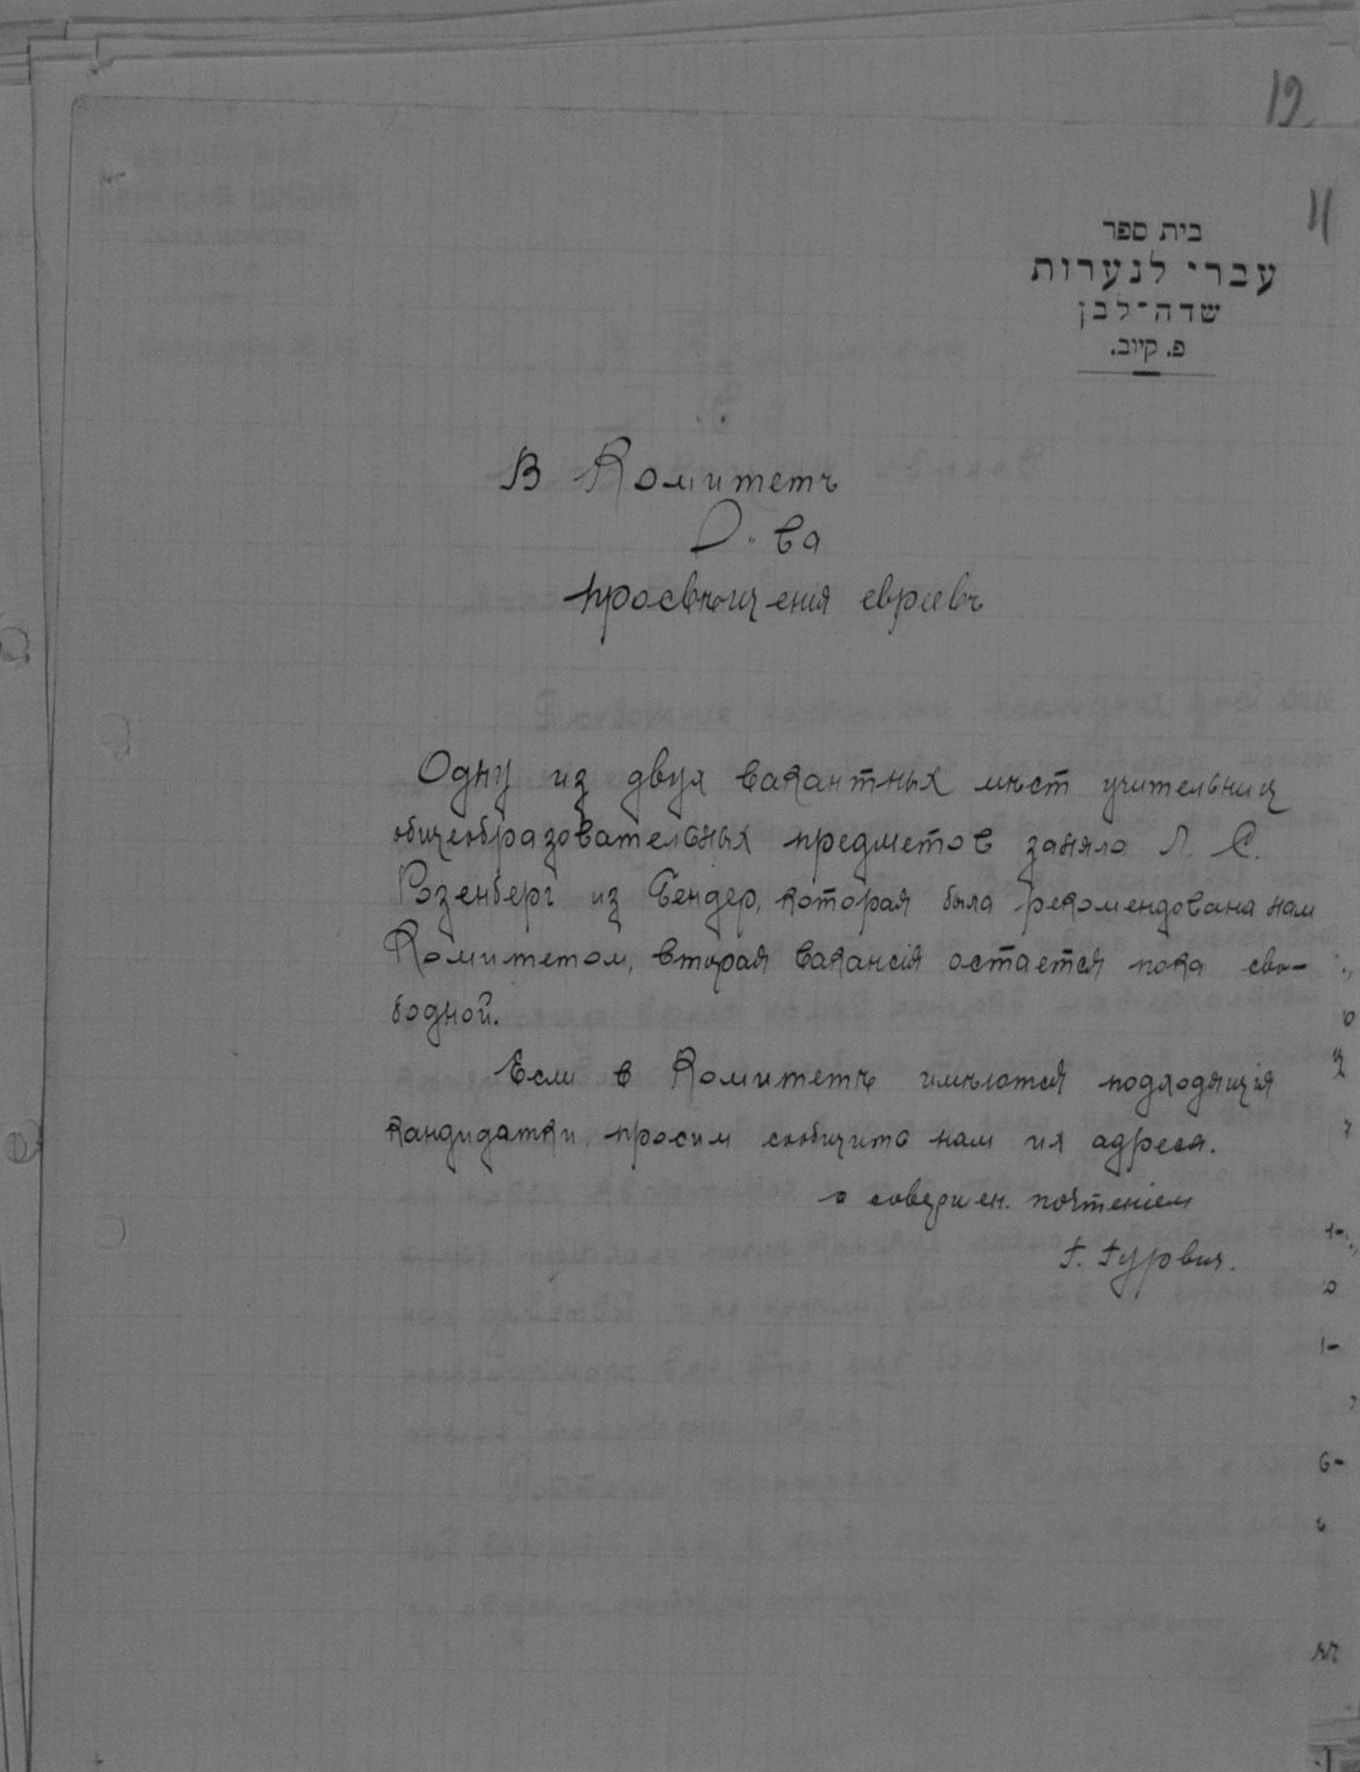 19
11
בית ספר
עברי לנערות
שדה־לבן
פ. קיוב.
В Комитетъ
О-ва
просвѣщенія евреевъ
Одну из двух вакантных мѣст учительниц
общеобразовательных предметов заняла Л. С.
Розенберг из Бендер, которая была рекомендована нам
Комитетом, вторая вакансія остается пока сво-
бодной.
Если в Комитетѣ имѣются подходящія
кандидатки просим сообщить нам их адреса.
с совершен. почтеніем
Г. Гурвич.